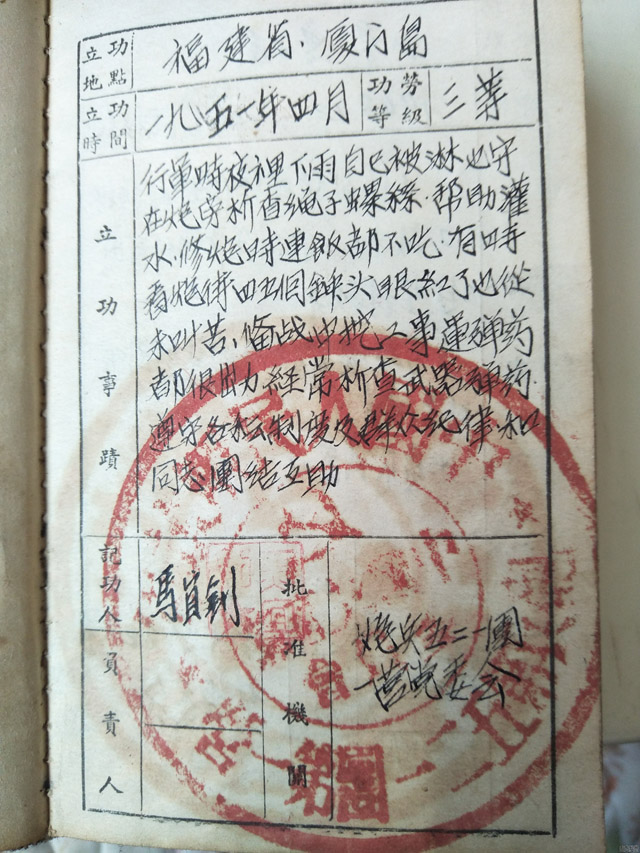 立功地點 福建省、厦门島
立功時間 一九五一年四月 功勞等級 三等
立功事蹟
行軍時夜裡下雨自己被淋也守
在炮旁 查绳子螺絲·帮助灌
水·修炮時連飯都不吃·有時
看炮 四五個鐘头眼紅了也從
未叫苦、备战中挖工事運弹药
都很出力·經常 查武器弹药·
遵守各 制度 群众紀律·和
同志團结互助
記功人 馬 釗
批准機關 炮兵五二一團
一营党委会
負責人